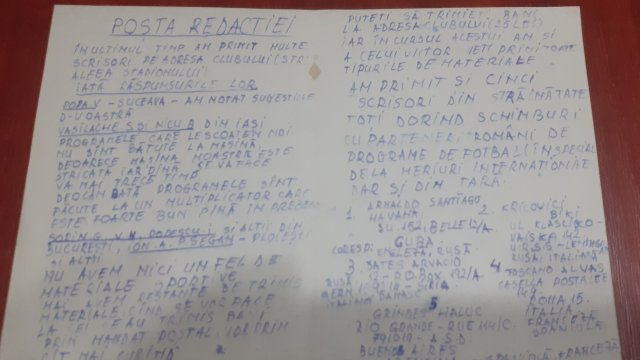 POSTA REDACTIEI
ÎN ULTIMUL TIMP AM PRIMIT MULTE
SCRISORI PE ADRESA CLUBULUI (STR.
ALEEA STADIONULUI)
IATĂ RĂSPUNSURILE LOR
POPA V - SUCEAVA - AM NOTAT SUGESTIILE
D-VOASTRĂ
VASILACHE S SI NICU B DIN IASI
PROGRAMELE CARE LE SCOATEM NOI
NU SÎNT BĂTUTE LA MASINĂ
DEOARECE MASINA NOASTRĂ ESTE
STRICATĂ IAR PÎNĂ SE VA FACE
VA MAI TRECE TIMP
DEOCAMDATĂ PROGRAMELE SÎNT
FĂCUTE LA UN MULTIPLICATOR CARE
ESTE FOARTE BUN PÎNĂ ÎN PREZENT
SORIN G, V.N. POPESCU SI ALTII DIN
BUCURESTI, ION.A. P SEGAN - PLOIESTI
SI ALTII
NU AVEM NICI UN FEL DE
MATERIALE SPORTIVE
MAI AVEM RESTANTE DE TRIMIS
MATERIALE CÎND SE VOR FACE
LA EI CE AU TRIMIS BANI
PRIN MANDAT POSTAL
CÎT MAI CURÎND
PUTETI SĂ TRIMITETI BANI
LA ADRESA CLUBULUI (25 LEI)
IAR ÎN CURSUL ACESTUI AN SI
A CELUI VIITOR VETI PRIMI TOATE
TIPURILE DE MATERIALE
AM PRIMIT SI CINCI
SCRISORI DIN STRĂINĂTATE
TOTI DORIND SCHIMBURI
CU PARTENERI ROMÂNI DE
PROGRAME DE FOTBAL (ÎN SPECIAL
DE LA MERIURI INTERNATIONALE
DAR SI DIN TARĂ.
1. ARNALDO SANTIAGO
HAVANA
CUBA
CORESP: ENGLEZĂ, RUSĂ
2. KRICOVICI
BIKI
UL KLASSISCO-
VAISKA 142
U.R.S.S - LENINGRAD
RUSĂ, ITALIANĂ
3. BATES
P.O. BOX 122/A
SIRIA
DAMASC
4
TOSCANO ALVAS
CASELLA POSTALE
142
ROMA 15.
ITALIA
FRANCEZĂ
SPANIOLĂ
5
GRINDES HALUC
RIO GRANDE - RUE 114/C
BUENOS AIRES